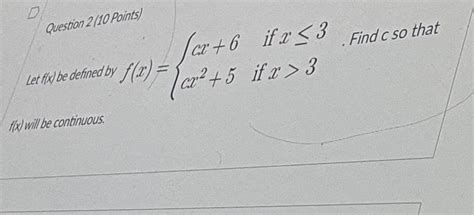 Question 2 (10 Points)
Let f(x) be defined by f(x) = { cx + 6 if x ≤ 3
cx² + 5 if x > 3 . Find c so that
f(x) will be continuous.